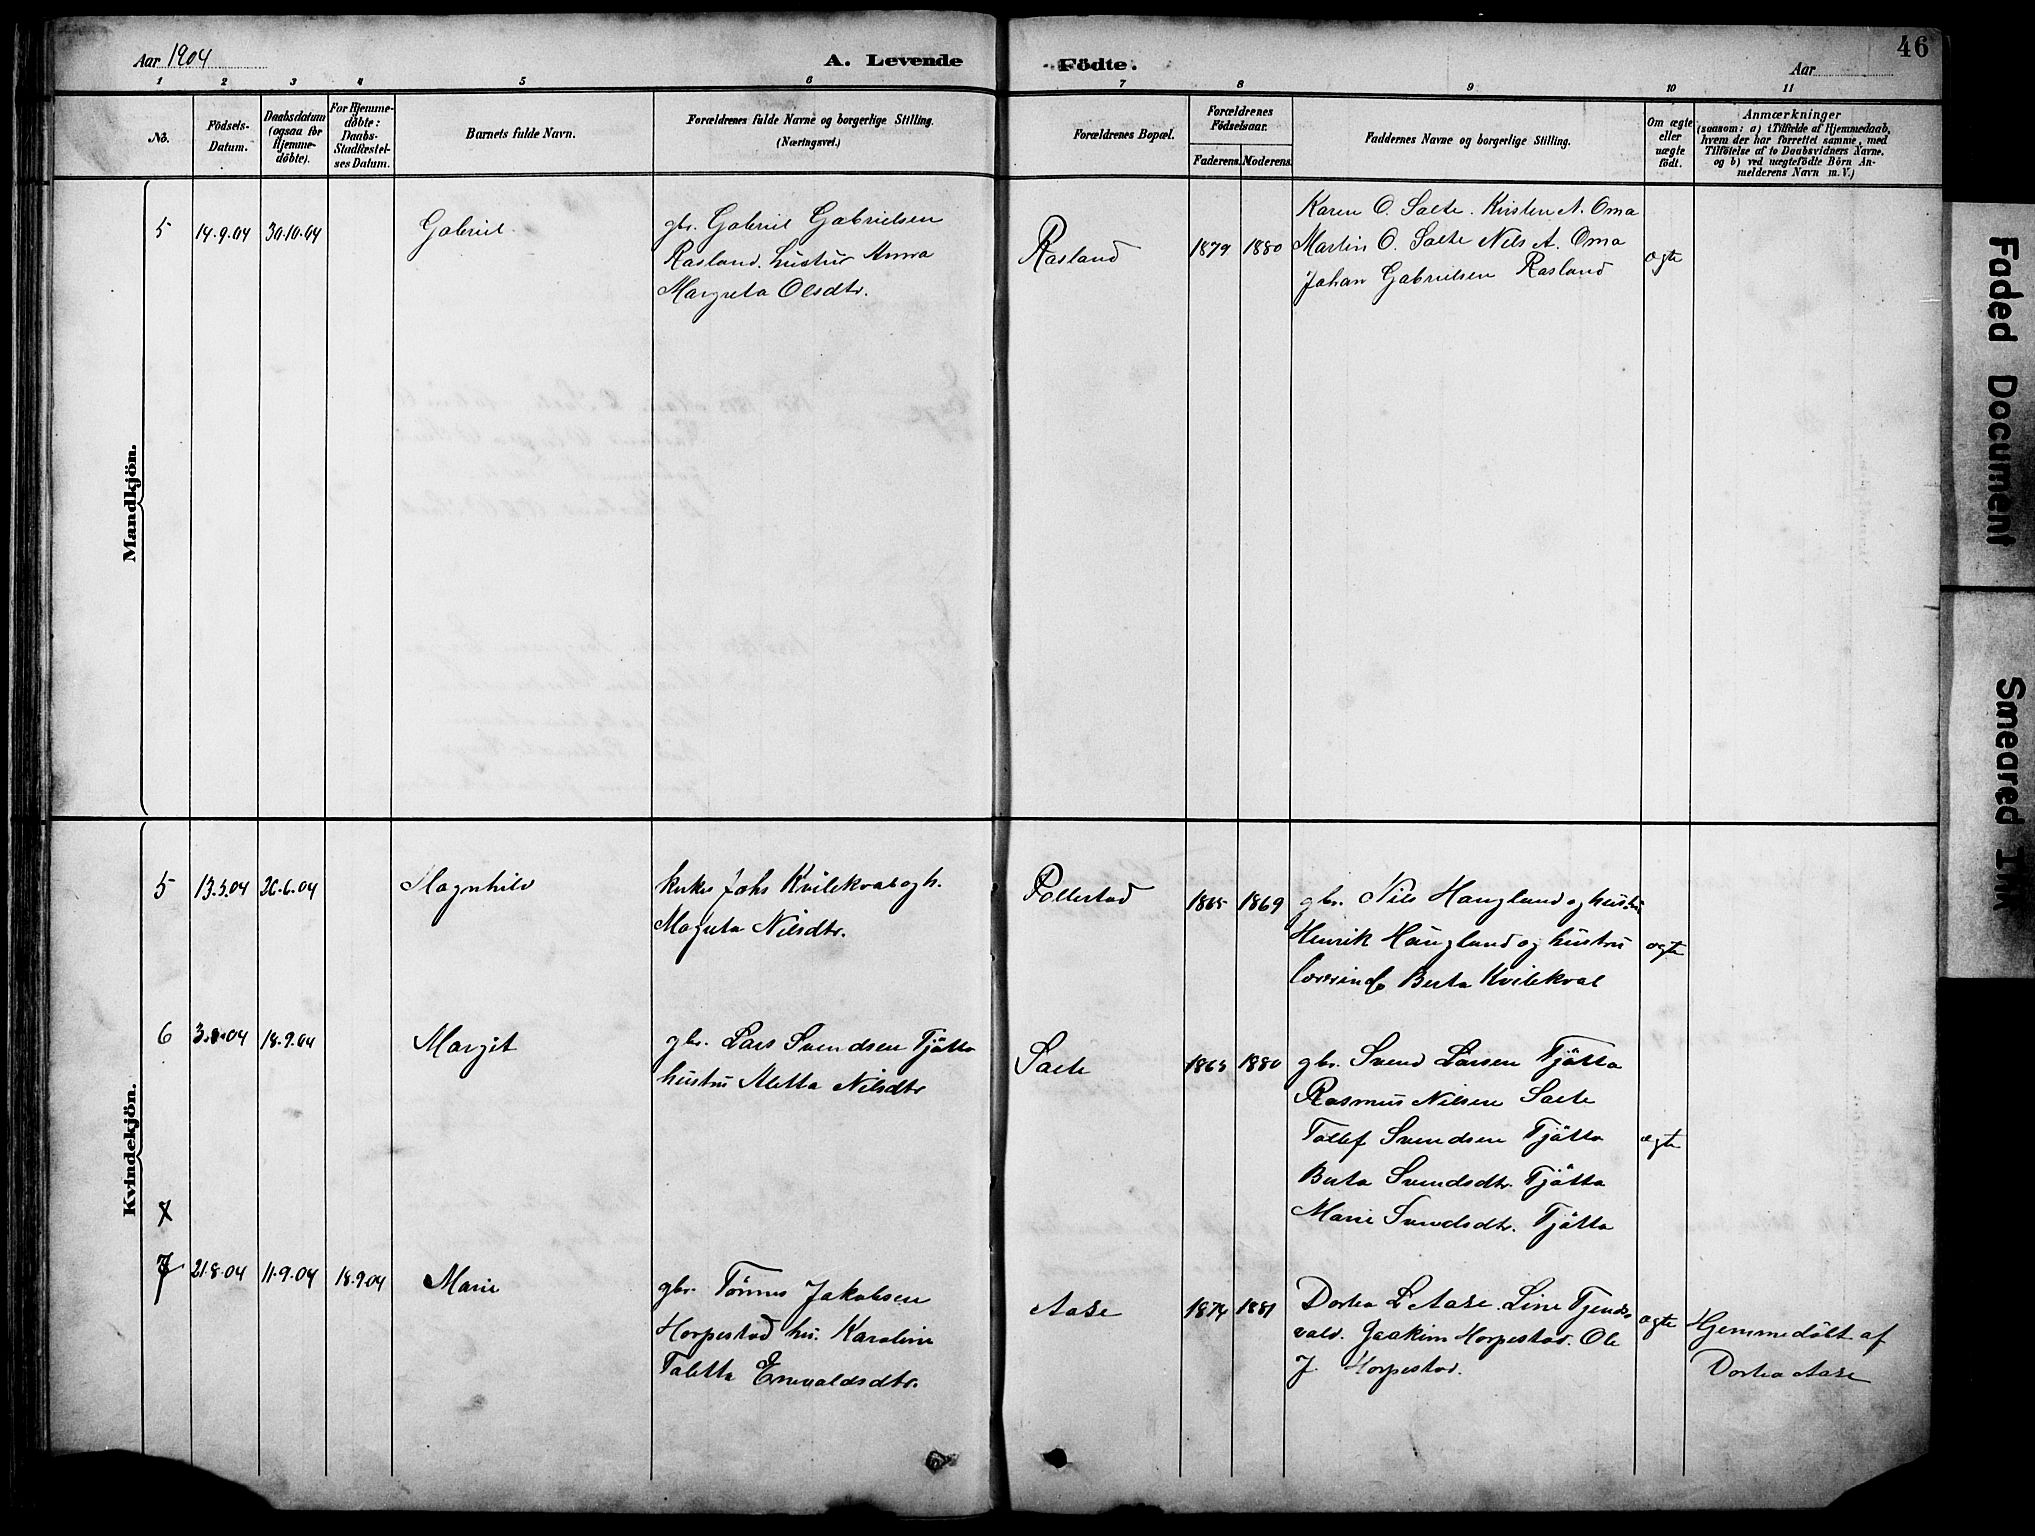 46
Aar 1904
A. Levende Födte.
Aar
1 2 3 4 5 6 7 8 9 10 11
No.
Födsels-
Datum.
Daabsdatum
(ogsaa for
Hjemme-
døbte).
For Hjemme-
døbte:
Daabs-
Stadfæstel-
ses Datum.
Barnets fulde Navn.
Forældrenes fulde Navne og borgerlige Stilling.
(Næringsvei.)
Forældrenes Bopæl.
Forældrenes
Födselsaar.
Faderens. Moderens.
Faddernes Navne og borgerlige Stilling.
Om ægte
eller
uægte
födt.
Anmærkninger
(saasom: a) i Tilfælde af Hjemmedaab,
hvem der har forrettet samme, med
Tilføielse af to Daabsvidners Navne.
og b) ved uægtefödte Börn An-
melderens Navn m. V.)
Mandkjön.
5 14.9.04 30.10.04 Gabriel
gbr. Gabriel Gabrielsen
Rasland. hustru Anna
Margreta Olsdtr.
Rasland 1879 1880
Karen O. Salte. Kirsten N. Oma
Martin O. Salte Nils A. Oma
Johan Gabrielsen Rasland
ægte
Kvindekjön.
5 13.5.04 26.6.04 Magnhild
kirkes. Johs Kvilekval og h.
Magreta Nilsdtr.
Pollestad 1865 1869
gbr. Nils Haugland og hustru
Henrik Haugland og hustru
Berta Kvilekval
ægte
6 18.9.04 Margit
gbr. Lars Svendsen Tjötta
hustru Metta Nilsdtr
Salte 1865 1880
gbr. Svend Larsen Tjötta
Rasmus Nilsen Salte
Tollef Svendsen Tjötta
Berta Svendsdtr. Tjötta
Marie Svendsdtr. Tjötta
ægte
7
7 21.8.04 11.9.04 18.9.04 Marie
gbr. Tönnes Jakobsen
Horpestad hu. Karoline
Taletta Enevaldsdtr.
Aase 1874 1881
Dortea L Aase. Line Tjends-
vold. Joakim Horpestad. Ole
J. Horpestad.
ægte
Hjemmedöbt af
Dortea Aase
Faded Document
Smeared Ink